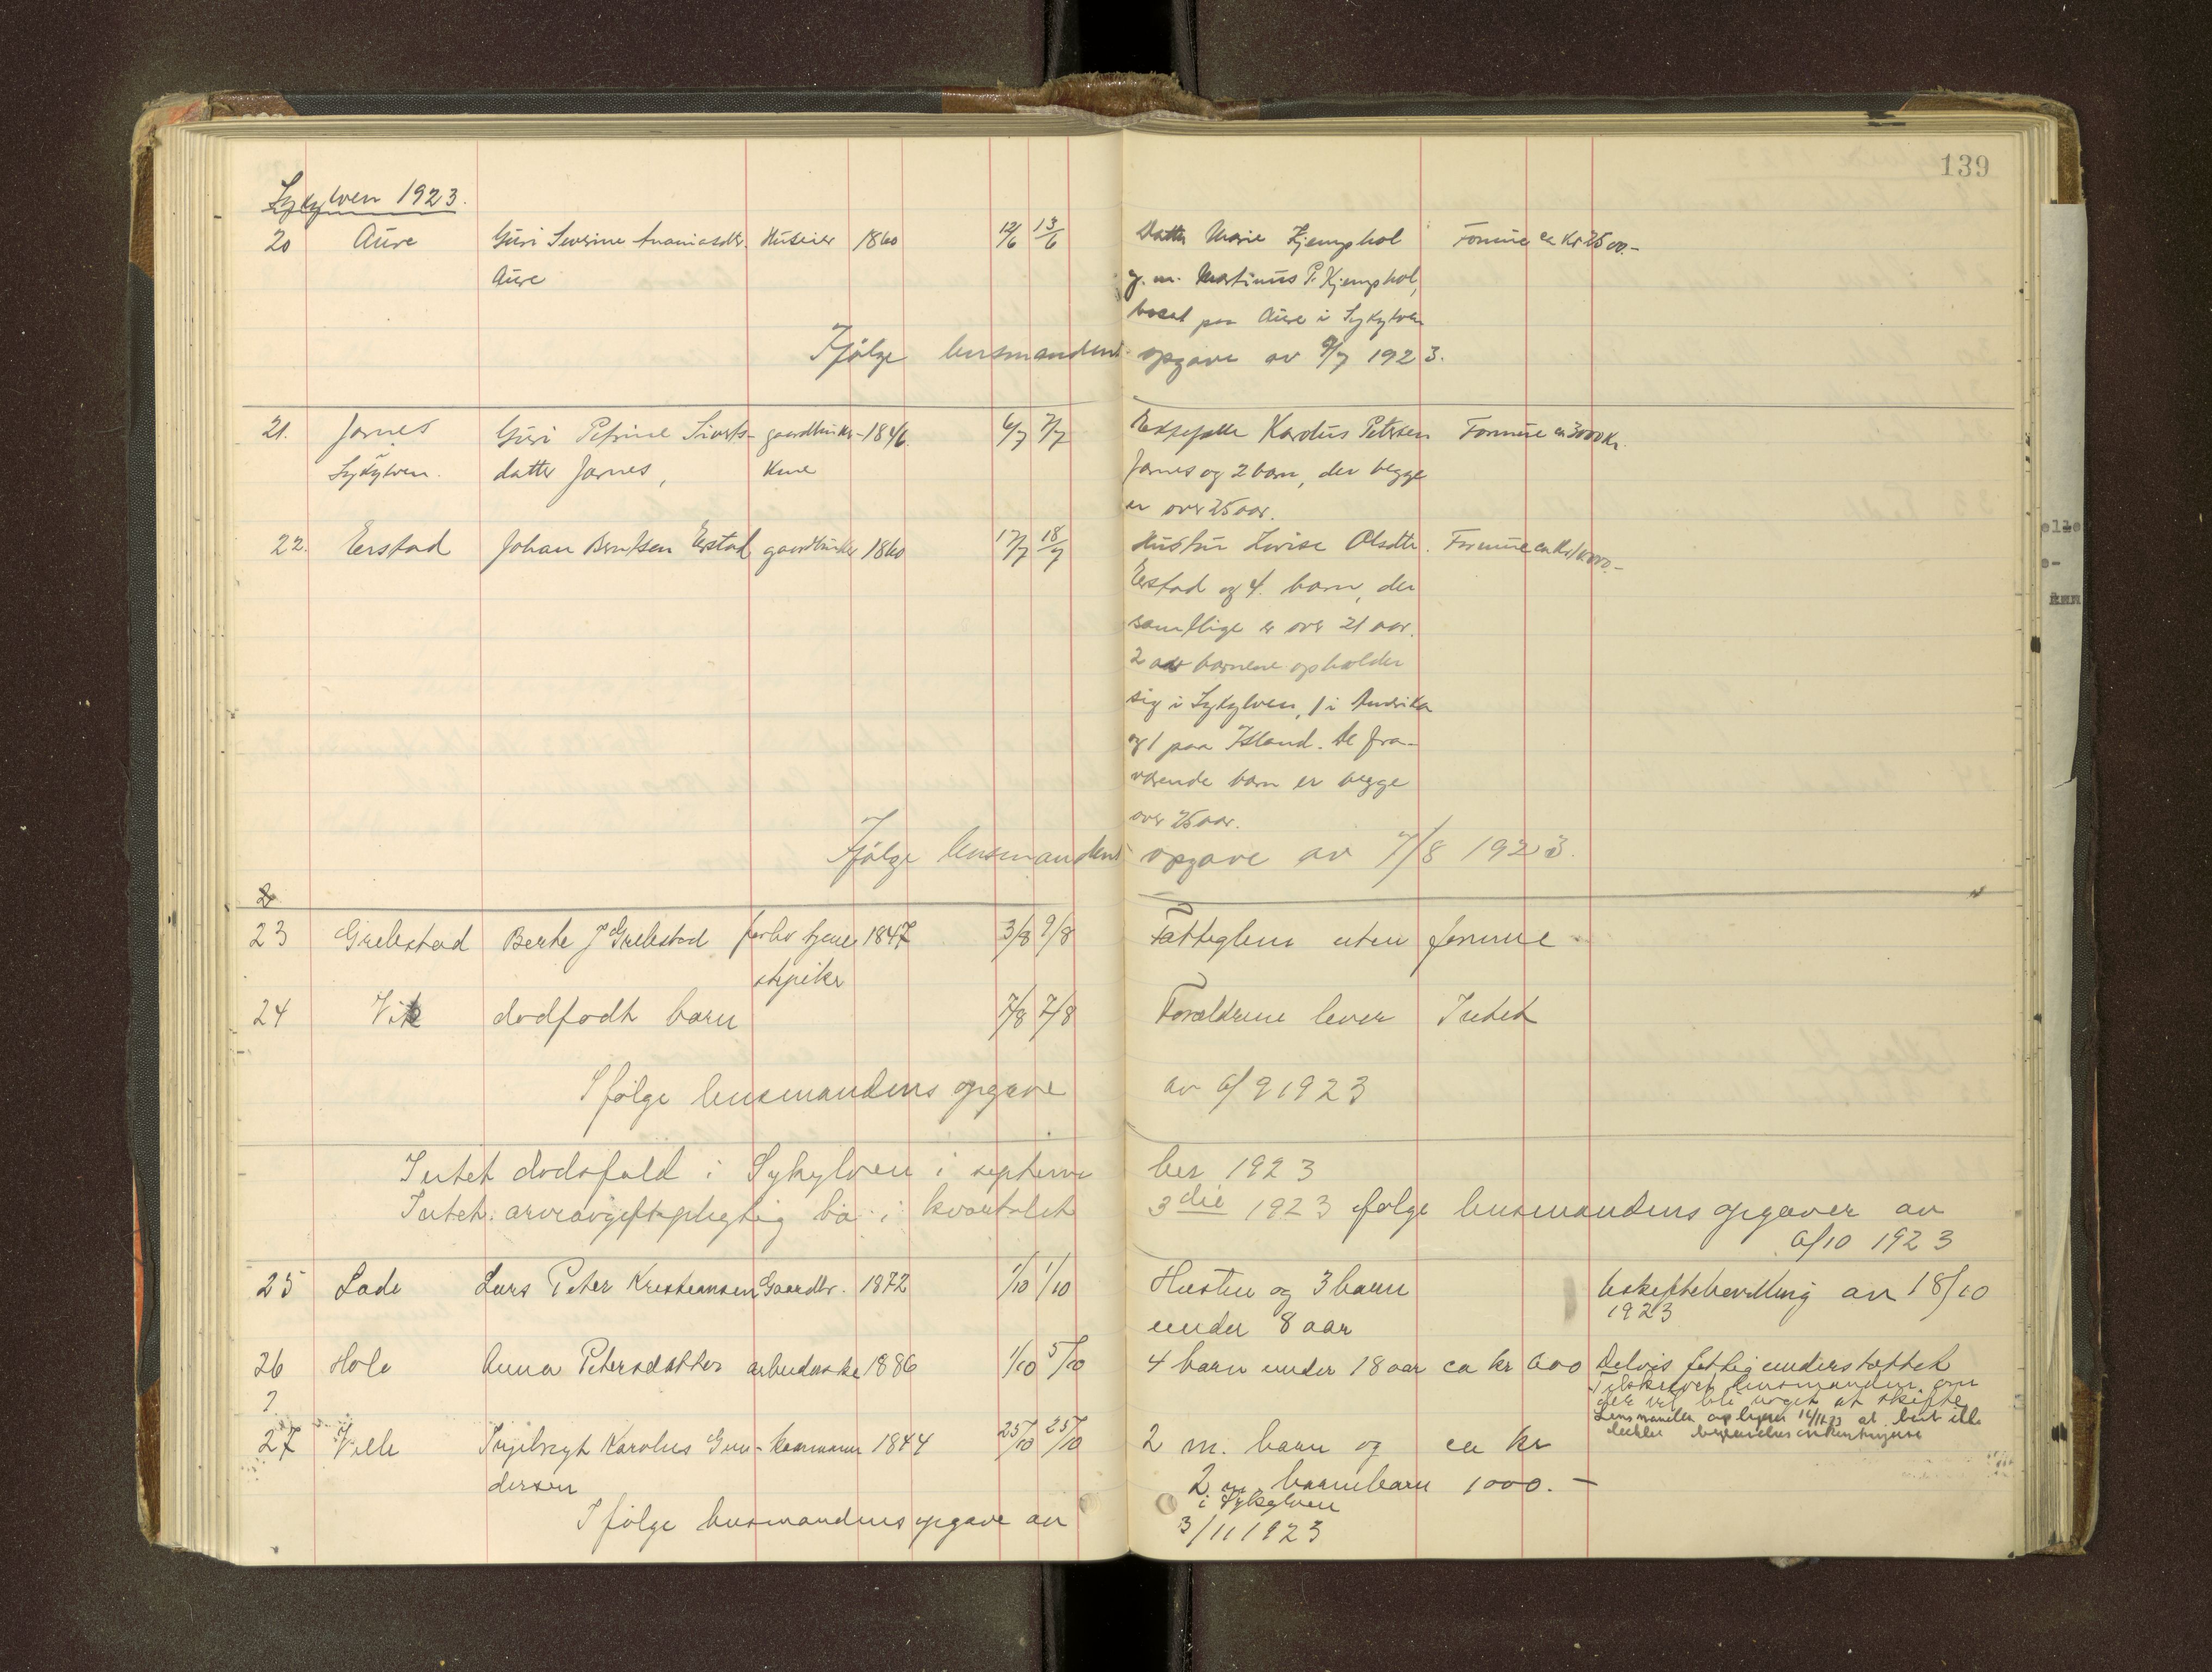 139
Sykylven 1923.
20 Aure Guri Severine Ananiasdtr. Huseier 1860 12/6 13/6 Datter Marie Kjemphol Formue ca kr 2500.-
Aure g. m. Martinus P. Kjemphol,
bosat paa Aure i Sykylven
Ifølge lensmandens opgave av 9/7 1923.
21. Jarnes Guri Petrine Siverts- gaardbruker- 1846 6/7 7/7 Karolus Petersen Formue ca 3000 kr.
Sykylven. datter Jarnes, kone Jarnes og 2 barn, der begge
er over 25 aar.
22. Erstad Johan Berntsen Erstad gaardbruker 1860 17/7 18/7 Hustru Lovise Olsdtr. Formue ca kr
Erstad og 4 barn, der
samtlige er over 21 aar.
2 av barnene opholder
sig i Sykylven, 1 i Amerika
og 1 paa Island. De fra-
værende barn er begge
over 25 aar.
Ifølge lensmandens opgave av 7/8 1923.
23 Grebestad Berte J Grebestad forhv tjene 1847 3/8 9/8 Fattiglem uten formue
stepike
24 Vik dødfødt barn 7/8 7/8 Forældrene lever Intet
Ifølge lensmandens opgave av 6/9 1923
Intet dødsfald i Sykylven i septem ber 1923
Intet arveavgiftspligtig bo i kvartalet 3die 1923 ifølge lensmandens opgaver av
6/10 1923
25 Lade Lars Peter Kristiansen Gaardbr. 1872 1/10 1/10 Hustru og 3 barn Uskiftebevilling av 18/10
under 8 aar 1923
26 Hole Anna Petersdatter arbeiderske 1886 1/10 5/10 4 barn under 18 aar ca kr 600 Delvis fattigunderstøttet
? Tilskrevet lensmanden om
der vil bli noget at skifte
Lensmanden oplyser 12/11 23 at boet ikke
dekker begravelsesomkostningerne
27 Velle Ingebrigt Karolus Gun- kaarmann 1844 25/10 25/10 2 m. barn og ca kr
dersen 2 m. barnebarn 1000.-
i Sykylven
Ifølge lensmandens opgave av 3/11 1923